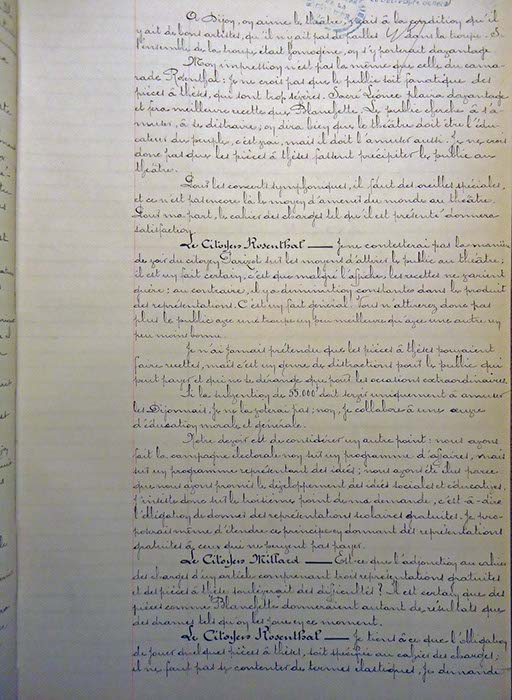 A Dijon, on aime le théâtre, mais à la condition qu'il
y ait de bons artistes, qu'il n'y ait pas de failles dans la troupe. Si
l'ensemble de la troupe était homogène, on s'y porterait davantage.
Mon impression n'est pas la même que celle du cama-
rade Rosenthal: je ne crois pas que le public soit fanatique des
pièces à thèses, qui sont trop sévères. Sacré Léonce plaira davantage
et fera meilleure recette que Blanchette. Le public cherche à s'a-
muser, à se distraire; on dira bien que le théâtre doit être l'édu-
cateur du peuple, c'est vrai, mais il doit l'amuser aussi. Je ne crois
donc pas que les pièces à thèses fassent précipiter le public au
théâtre.
Pour les concerts symphoniques, il faut des oreilles spéciales,
et ce n'est pas encore là le moyen d'amener du monde au théâtre.
Pour ma part, le cahier des charges tel qu'il est présenté donnera
satisfaction.
Le Citoyen Rosenthal — Je ne contesterai pas la manière
de voir du citoyen sur les moyens d'attirer le public au théâtre;
il est un fait certain, c'est que malgré l'affiche, les recettes ne varient
guère; au contraire, il y a diminution constante dans le produit
des représentations. C'est un fait général. Vous n'attirerez donc pas
plus le public avec une troupe un peu meilleure qu'avec une autre un
peu moins bonne.
Je n'ai jamais prétendu que les pièces à thèses pouvaient
faire recettes, mais c'est un genre de distractions pour le public qui
peut payer et qui ne se dérange que pour les occasions extraordinaires.
Si la subvention de 55.000f doit servir uniquement à amuser
les Dijonnais, je ne la voterai pas; non, je collabore à une œuvre
d'éducation morale et générale.
Notre devoir est de considérer un autre point: nous avons
fait la campagne électorale non sur un programme d'affaires, mais
sur un programme représentant des idées; nous avons été élus parce
que nous avons promis le développement des idées sociales et éducatives.
J'insiste donc sur le troisième point de ma demande, c'est-à-dire
l'obligation de donner des représentations scolaires gratuites. Je pro-
poserais même d'étendre ce principe en donnant des représentations
gratuites à ceux qui ne peuvent pas payer.
Le Citoyen Millard — Est-ce que l'adjonction au cahier
des charges d'un article comprenant trois représentations gratuites
et des pièces à thèse soulèverait des difficultés? Il est certain que des
pièces comme Blanchette donneraient autant de résultats que
des drames tels qu'on les joue en ce moment.
Le Citoyen Rosenthal — Je tiens à ce que l'obligation
de jouer quelques pièces à thèses, soit spécifiée au cahier des charges;
il ne faut pas se contenter de termes élastiques, je demande